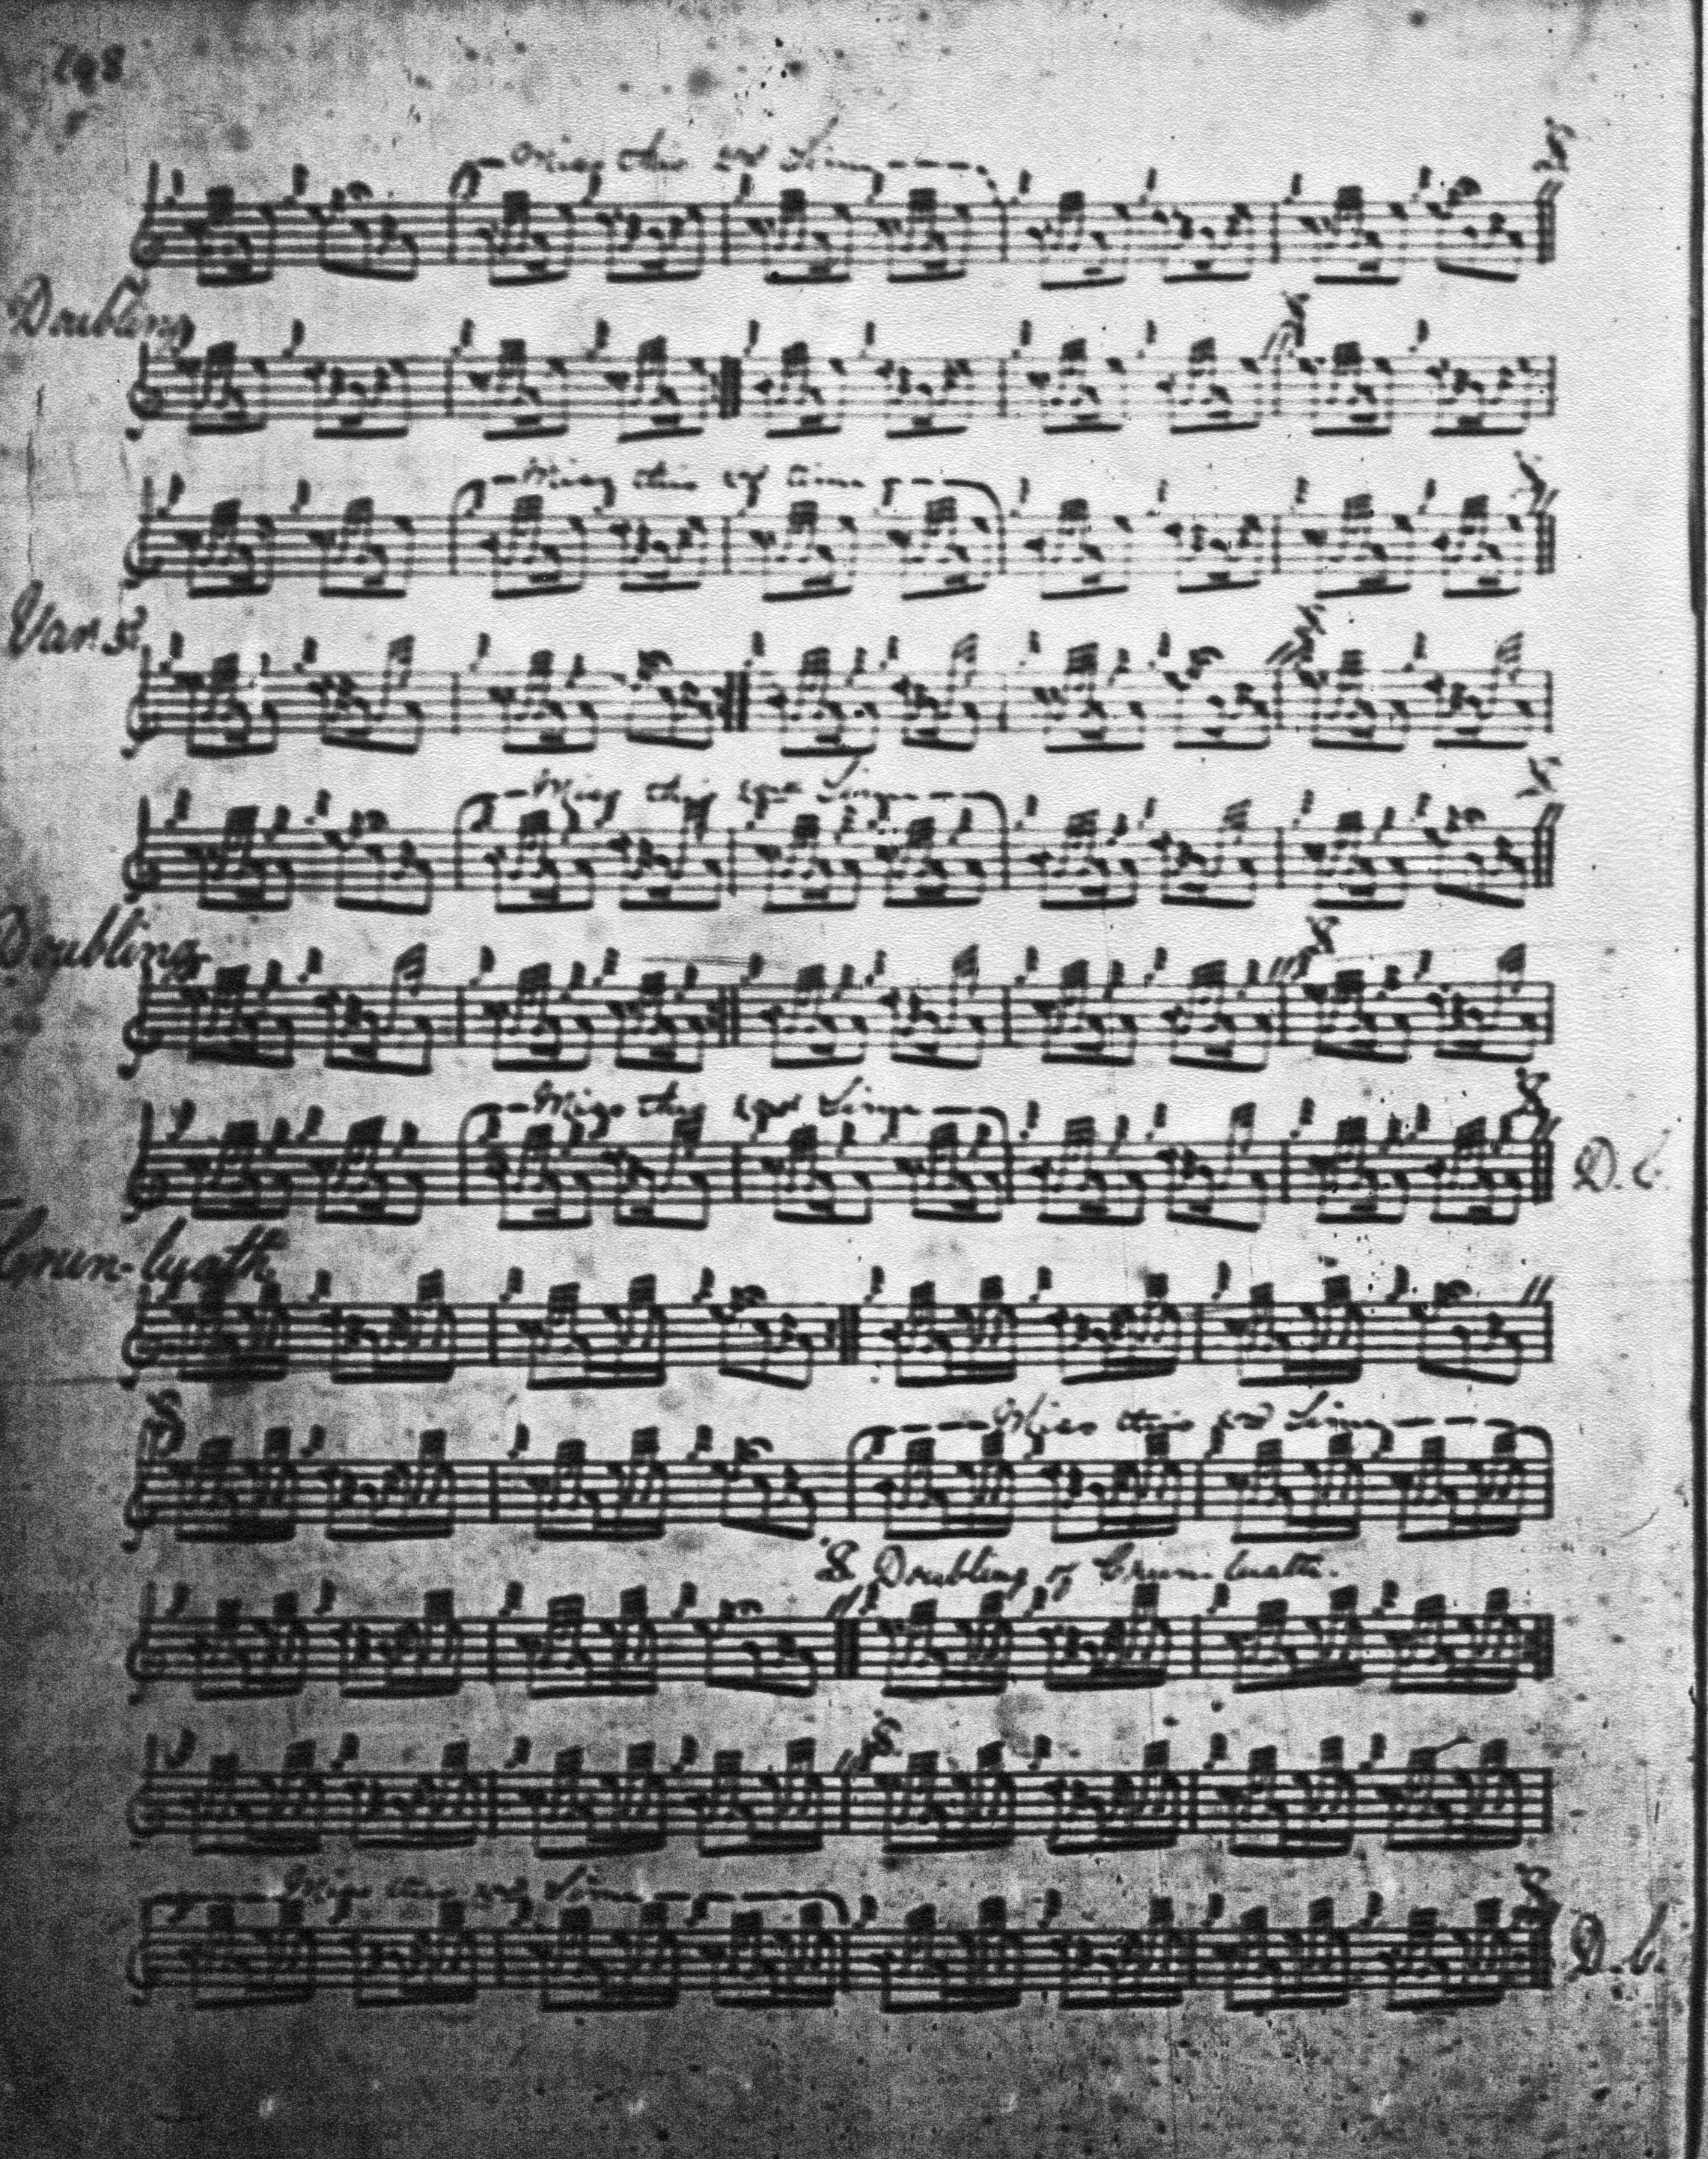 198
Miss this 2nd Time
Doubling
Miss this 2nd time
Var. 3d
Miss this 2nd Time
Doubling
Miss this 2nd Time
D.C.
Crun-luath
Miss this 2nd Time
Doubling of Crun-luath.
Miss this 2nd Time
D.C.